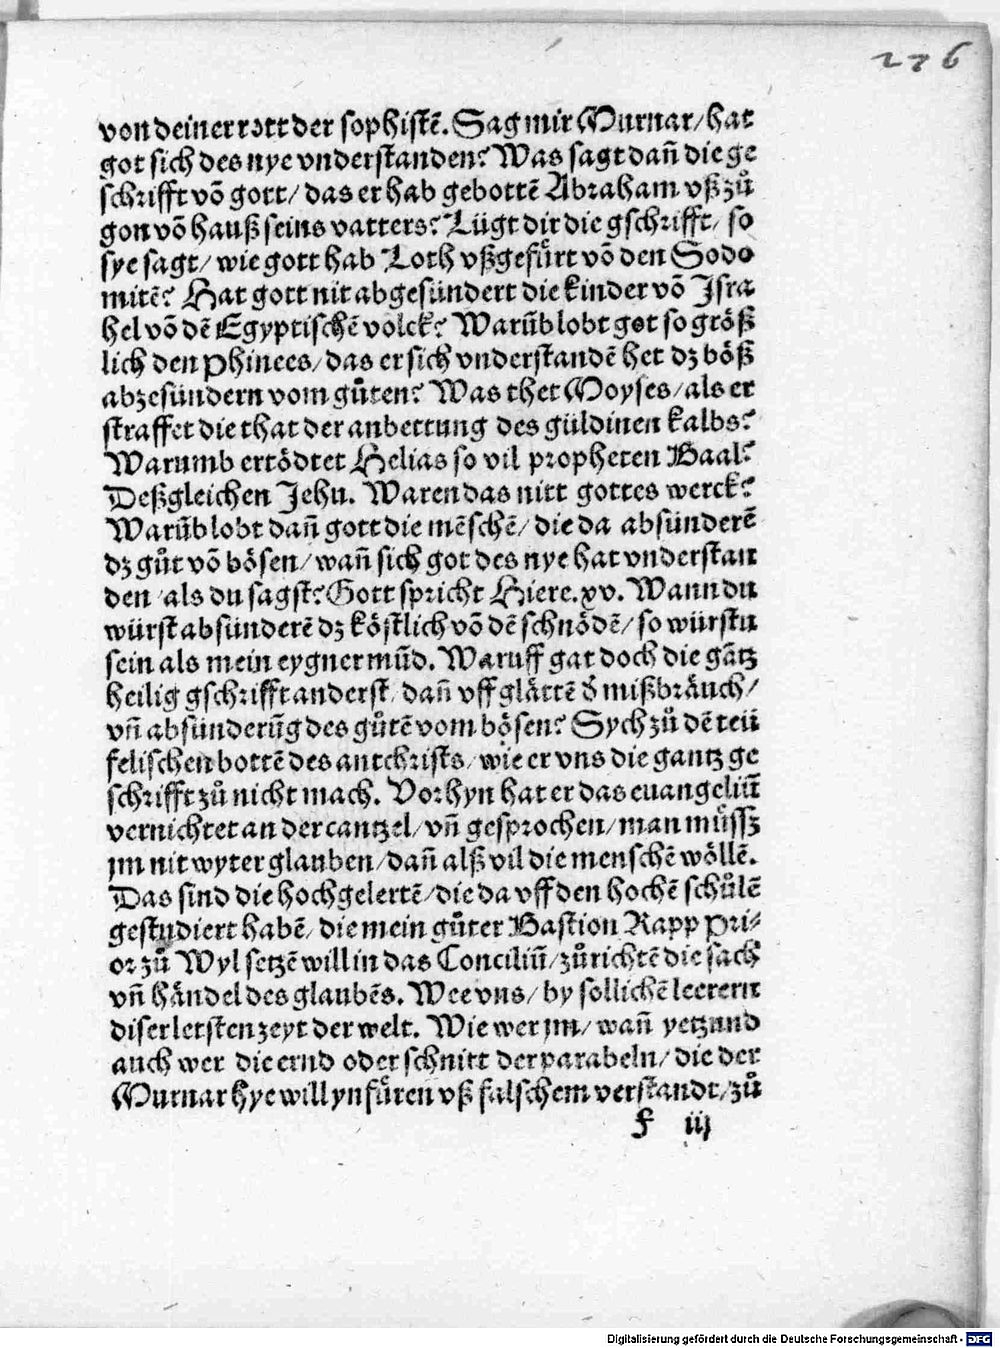 276
von deiner rott der sophistē. Sag mir Murnar/ hat
got sich des nye vnderstanden? Was sagt dañ die ge
schrifft vō gott/ das er hab gebottē Abraham vß zů
gon vō hauß seins vatters? Lügt dir die gschrifft/ so
sye sagt/ wie gott hab Loth vßgefůrt vō den Sodo
mitē? Hat gott nit abgesündert die kinder vō Isra
hel vō dē Egyptischē volck? Warūb lobt got so größ
lich den Phinees/ das er sich vnderstandē het dz böß
abzesündern vom gůten? Was thet Moyses/ als er
straffet die that der anbettung des güldinen kalbs?
Warumb ertödtet Helias so vil propheten Baal?
Deßgleichen Jehu. Waren das nitt gottes werck?
Warūb lobt dañ gott die mēschē/ die da absünderē
dz gůt vō bösen/ wañ sich got des nye hat vnderstan
den/ als du sagst? Gott spricht Hiere. xv. Wann du
würst absünderē dz köstlich vō dē schnödē/ so würstu
sein als mein eygner mūd. Waruff gat doch die gātz
heilig gschrifft anderst/ dañ vff glättē d̕ mißbräuch/
vñ absünderūg des gůtē vom bösen? Sych zů dē teü
felischen bottē des antchrists/ wie er vns die gantz ge
schrifft zů nicht mach. Vorhyn hat er das euangeliū
vernichtet an der cantzel/ vñ gesprochen/ man müssz
jm nit wyter glauben/ dañ alß vil die menschē wöllē.
Das sind die hochgelertē/ die da vff den hochē schůlē
gestudiert habē/ die mein gůter Bastion Rapp Pri⸗
or zů Wyl setzē will in das Conciliū/ zů richtē die sach
vñ händel des glaubēs. Wee vns/ by sollichē leerern
diser letsten zeyt der welt. Wie wer jm/ wañ yetzund
auch wer die ernd oder schnitt der parabeln/ die der
Murnar hye will ynfůren vß falschem verstandt/ zů
f iij
Digitalisierung gefördert durch die Deutsche Forschungsgemeinschaft - DFG